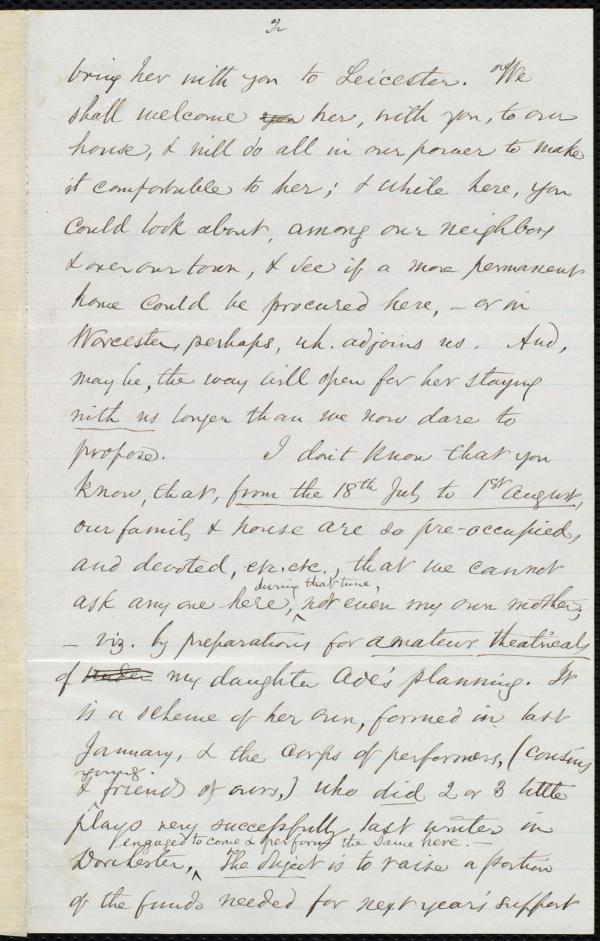 2
bring her with you to Leicester. We
shall welcome you her, with you, to our
house, & will do all in our power to make
it comfortable to her; & while here, you
could look about, among our neighbors
& over our town, & see if a more permanent
home could be procured here, – or in
Worcester, perhaps, wh. adjoins us. And,
may be, the way will open for her staying
with us longer than we now dare to
propose. I don't know that you
know, that, from the 18th July to 1st August,
our family & house are so pre-occupied,
and devoted, etc. etc., that we cannot
during that time,
ask any one here, not even my own mother;
– viz. by preparations for amateur theatricals
of under my daughter Ade's planning. It
is a scheme of her own, formed in last
January, & the corps of performers, (cousins
young
& friends of ours,) who did 2 or 3 little
plays very successfully last winter in
engaged to come & perform the same here. –
Dorchester, The object is to raise a portion
of the funds needed for next year's support